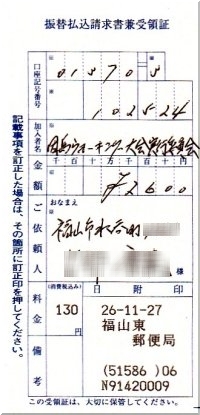 振替払込請求書兼受領証
口座記号番号
01370 3
102524
加入者名
金額
千百十万千百十円
¥2600
ご依頼人
おなまえ
福山市水呑町,
様
料金
(消費税込み)
130円
日附印
26-11-27
福山東
郵便局
(51586 )06
N91420009
備考
この受領証は、大切に保管してください。
記載事項を訂正した場合は、その箇所に訂正印を押してください。